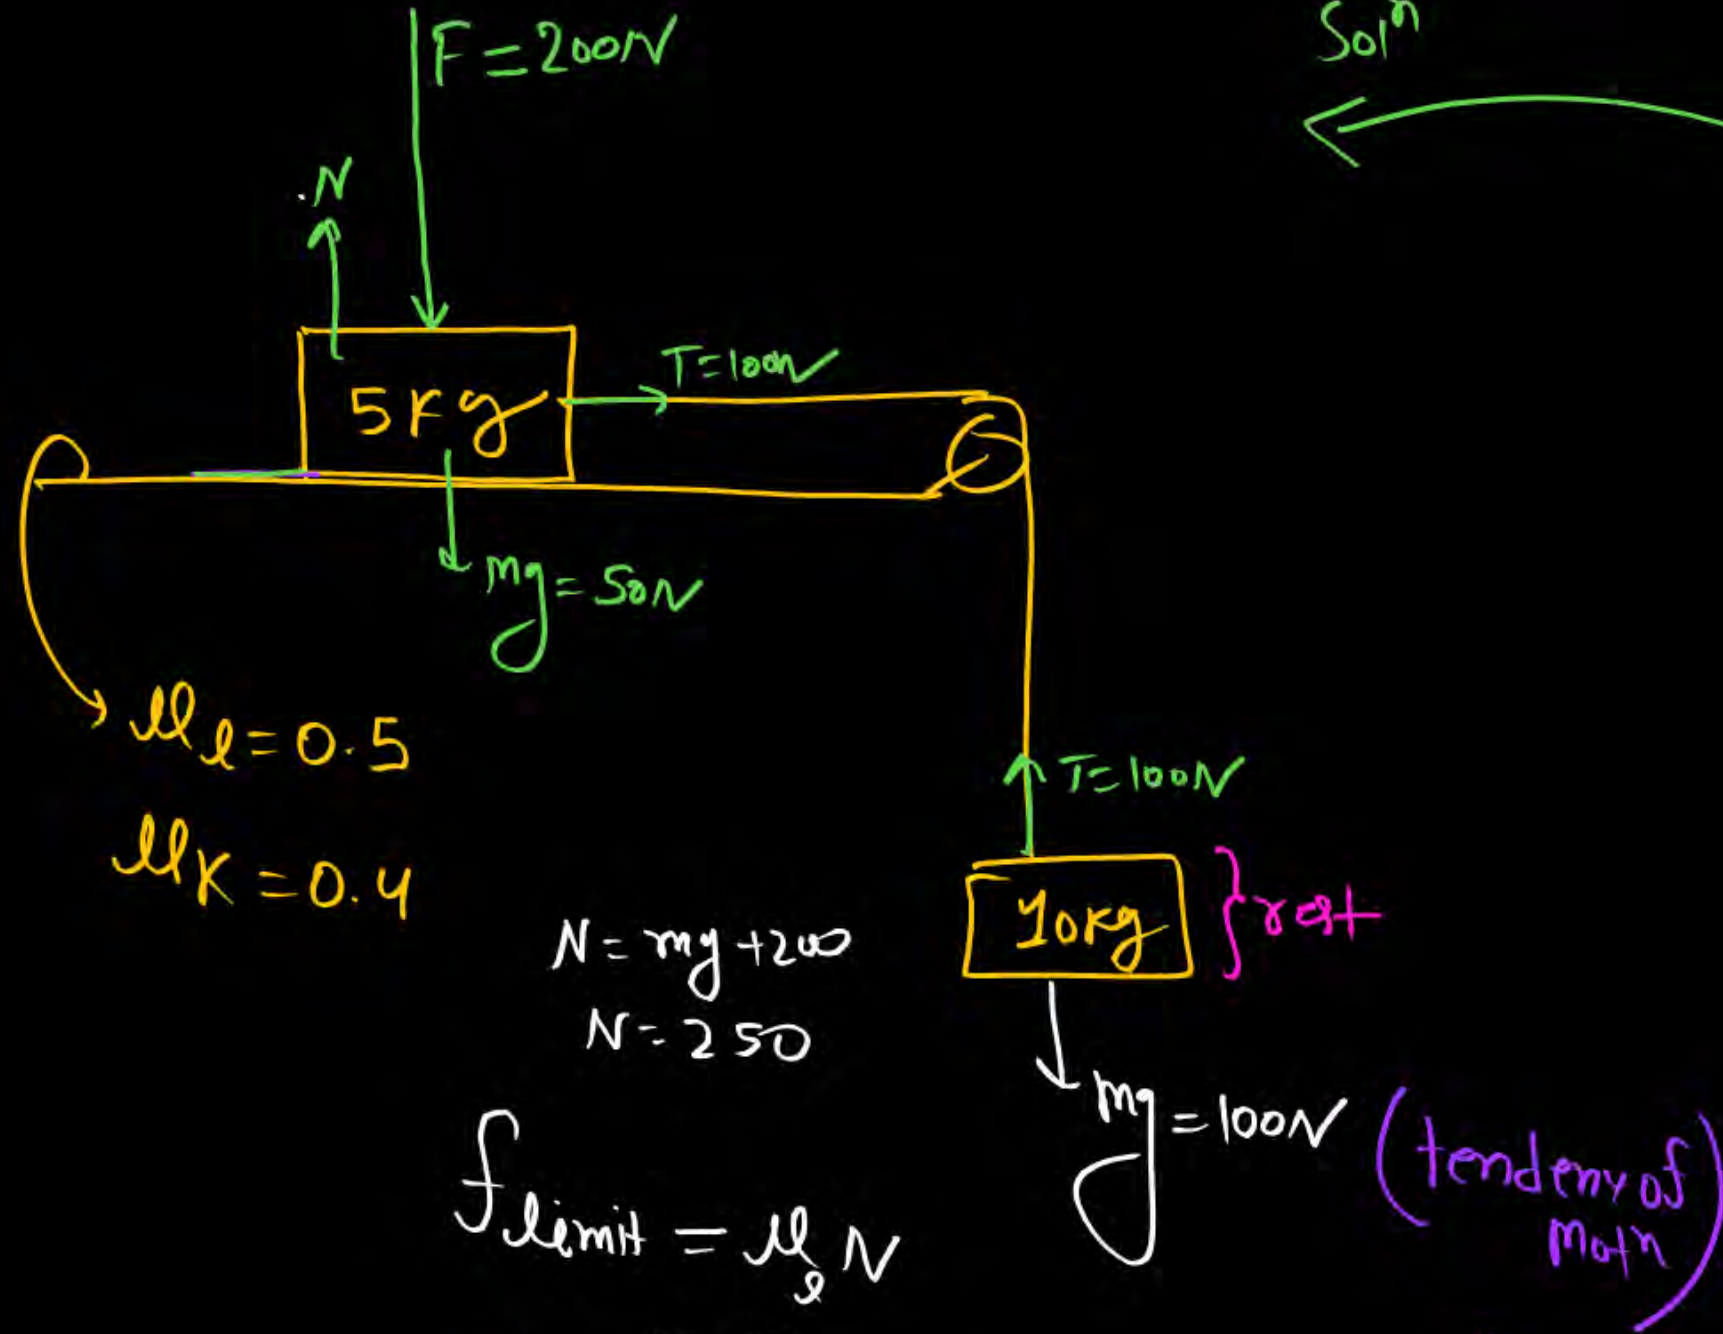 F = 200N
Solⁿ
.N
T = 100N
5 Kg
mg = 50N
μl = 0.5
T = 100N
μK = 0.4
10Kg
} rest
N = mg + 200
N = 250
mg = 100N
(tendeny of
motn)
flimit = μl N